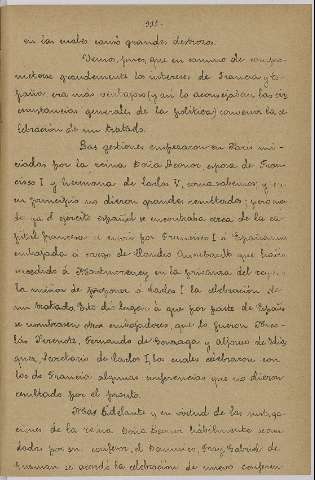 en las cuales causó grandes destrozos.
Vemos, pues, que en camino de compro-
meterse grandemente los intereses de Francia y Es-
paña era mas ventajoso (y asi lo aconsejaban las cir-
cunstancias generales de la política) convenir la ce-
lebración de un tratado.
Las gestiones empezaron en Paris ini-
ciadas por la reina Doña Leonor, esposa de Fran-
cisco I y hermana de Carlos V, como sabemos y
en principio no dieron grandes resultados; pero cuan-
do ya el ejercito español se encontraba cerca de la ca-
pital francesa envió por Francisco I á España una
embajada á cargo de Claudio Annebault que había
sucedido á Montmorency en la privanza del rey
la misión de proponer á Carlos I la celebración de
un tratado. Esto dió lugar á que por parte de España
se nombrasen otros embajadores, que lo fueron Nico-
lás Perenote, Fernando de Gonzaga y Alfonso de Idia-
quez, Secretario de Carlos I, los cuales celebraron con
los de Francia algunas conferencias que no dieron
resultado por el pronto.
Mas adelante y en virtud de las instiga-
ciones de la reina Doña Leonor habilmente secun-
dadas por su confesor, el Dominico, Fray Gabriel de
Guzman se acordó la celebración de nuevas conferen-